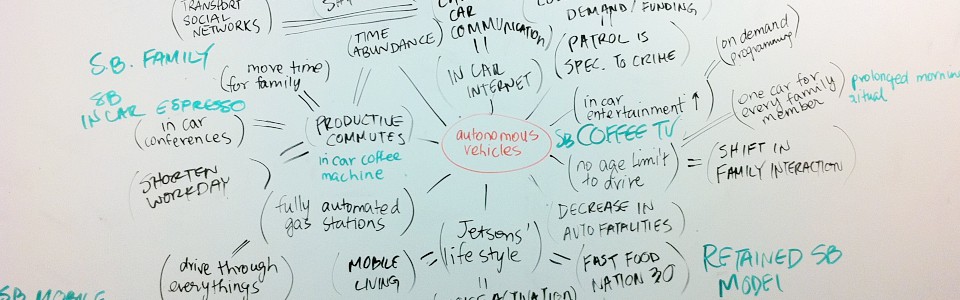 TRANSPORT
SOCIAL
NETWORKS
S.B. FAMILY
SB
IN CAR ESPRESSO
(move time
for family)
(TIME
ABUNDANCE)
CAR
COMMUNICATION)
IN CAR
INTERNET
DEMAND / FUNDING)
(PATROL IS
SPEC. TO CRIME)
(on demand
programming)
(in car
entertainment ↑)
(one car for
every family
member)
prolonged morning
ritual
SB COFFEE TV
(in car
conferences)
(PRODUCTIVE
COMMUTES)
in car coffee
machine
autonomous
vehicles
(no age limit
to drive)
=
(SHIFT IN
FAMILY INTERACTION)
(SHORTEN
WORKDAY)
(fully automated
gas stations)
(Jetsons'
life style)
(DECREASE IN
AUTO FATALITIES)
(drive through
everythings)
(MOBILE
LIVING)
=
=
(FAST FOOD
NATION 3.0)
RETAINED SB
MODEL
SB MOBILE